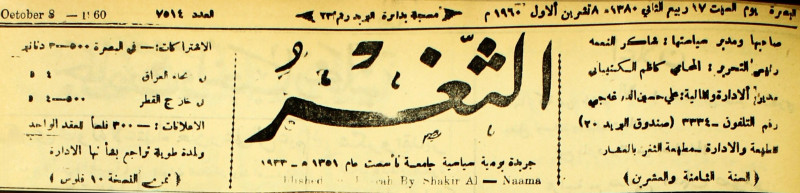 البصرة يوم السبت ١٧ ربيع الثاني ١٣٨٠ - ٨ تشرين الاول ١٩٦٠ م
مسجلة بدائرة البريد رقم ٢٣
العدد ٧٥١٤
October 8 — 1960
صاحبها ومدير سياستها: شاكر النعمه
رئيس التحرير: المحامي كاظم
مدير الادارة والمالية: علي حسين
رقم التلفون - ٣٣٣٤ (صندوق البريد ٢٠)
المطبعة والادارة - مطبعة الثغر بالعشار
(السنة الثامنة والعشرين)
الثغر
جريدة يومية سياسية جامعة تأسست عام ١٣٥١ هـ ١٩٣٣
By Shakir Al — Naama
الاشتراكات: — في البصرة ٥٠٠-٣ دنانير
انحاء العراق ٤ »
خارج القطر ٥٠٠-٤ »
الاعلانات: — ٣٠٠ فلساً للعقد الواحد
ولمدة طويلة تراجع بشأنها الادارة
(ثمن النسخة ١٠ فلوس)